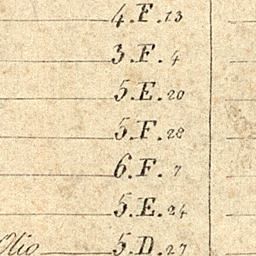 4.F.13
3.F.4
5.E.20
5.F.28
6.F.7
5.E.24
Olio 5.D.27